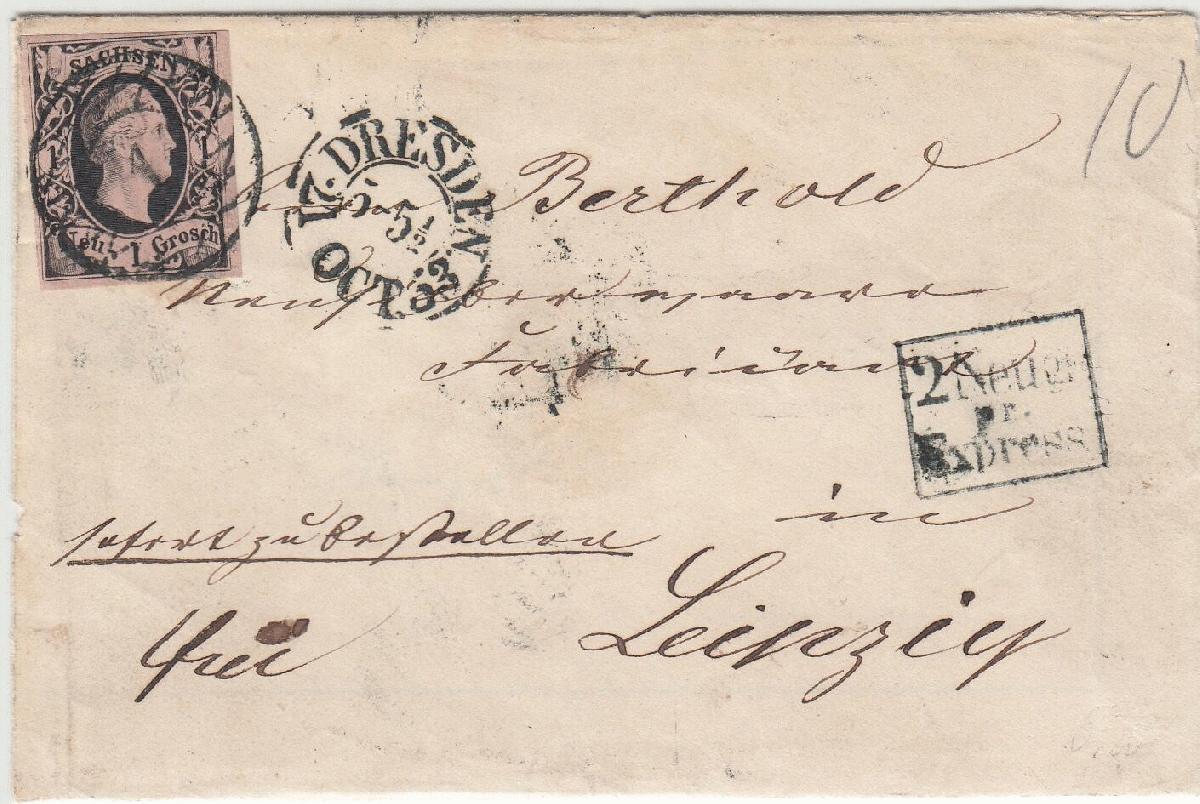 SACHSEN
1 1
Neu- 1 Grosch
17. DRESDEN
5-5½
OCT. 53
10
Herrn Berthold
Neusilberwaaren
Fabrikant
2 Neugr
pr.
Express
in
sofort zu bestellen
Leipzig
frei